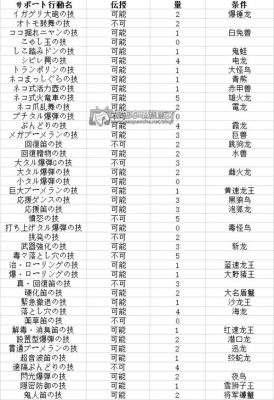 サポート行動名 伝授 量 条件
イガグリ大砲の技 可能 2 爆锤龙
オトモ鼓舞の技 不可 2
ココ掘れニャンの技 可能 1 白兔兽
こやし玉の技 可能 0
しこ踏みドンの技 可能 1 鬼蛙
シビレ罠の技 可能 4 电龙
トランポリンの技 可能 1 大怪鸟
ネコまっしぐらの技 可能 1 青熊
ネコ式活力壺の技 可能 1 赤甲兽
ネコ式火竜車の技 可能 5 雄火龙
ネコ爪乱舞の技 可能 2 電龙
プチタル爆弾の技 可能 0
ぶんどりの技 可能 4 霞龙
メガブーメランの技 可能 3 巨兽
回復笛の技 不可 2 跳狗龙
回復贈物の技 可能 2 水兽
大タル爆弾Gの技 不可 3
大タル爆弾の技 可能 2 雌火龙
小タル爆弾の技 可能 0
巨大ブーメランの技 可能 1 黄速龙王
応援ダンスの技 可能 3 黑狼鸟
応援笛の技 可能 3 泡狐龙
憤怒の技 不可 5
打ち上げタル爆弾の技 可能 0 毒怪鸟
挑発の技 不可 2
武器強化の技 可能 3 斩龙
毒々落とし穴の技 不可 5
泊・ローリングの技 可能 1 蓝速龙王
爆・ローリングの技 可能 1 大野猪王
真・回復笛の技 不可 3
硬化笛の技 可能 2 大名盾蟹
緊急撤退の技 可能 1 沙龙王
落とし穴の技 可能 4 海龙
薬草笛の技 不可 0
解毒・消臭笛の技 可能 1 红速龙王
設置型爆弾の技 可能 2 潜口龙
貫通ブーメランの技 可能 2 迅龙
超音波笛の技 可能 1 绞蛇龙
遠隔ぶんどりの技 不可 4
閃光爆弾の技 可能 2 夜鸟
隠密防御の技 可能 1 雪狮子王
鬼人笛の技 可能 2 将军镰蟹